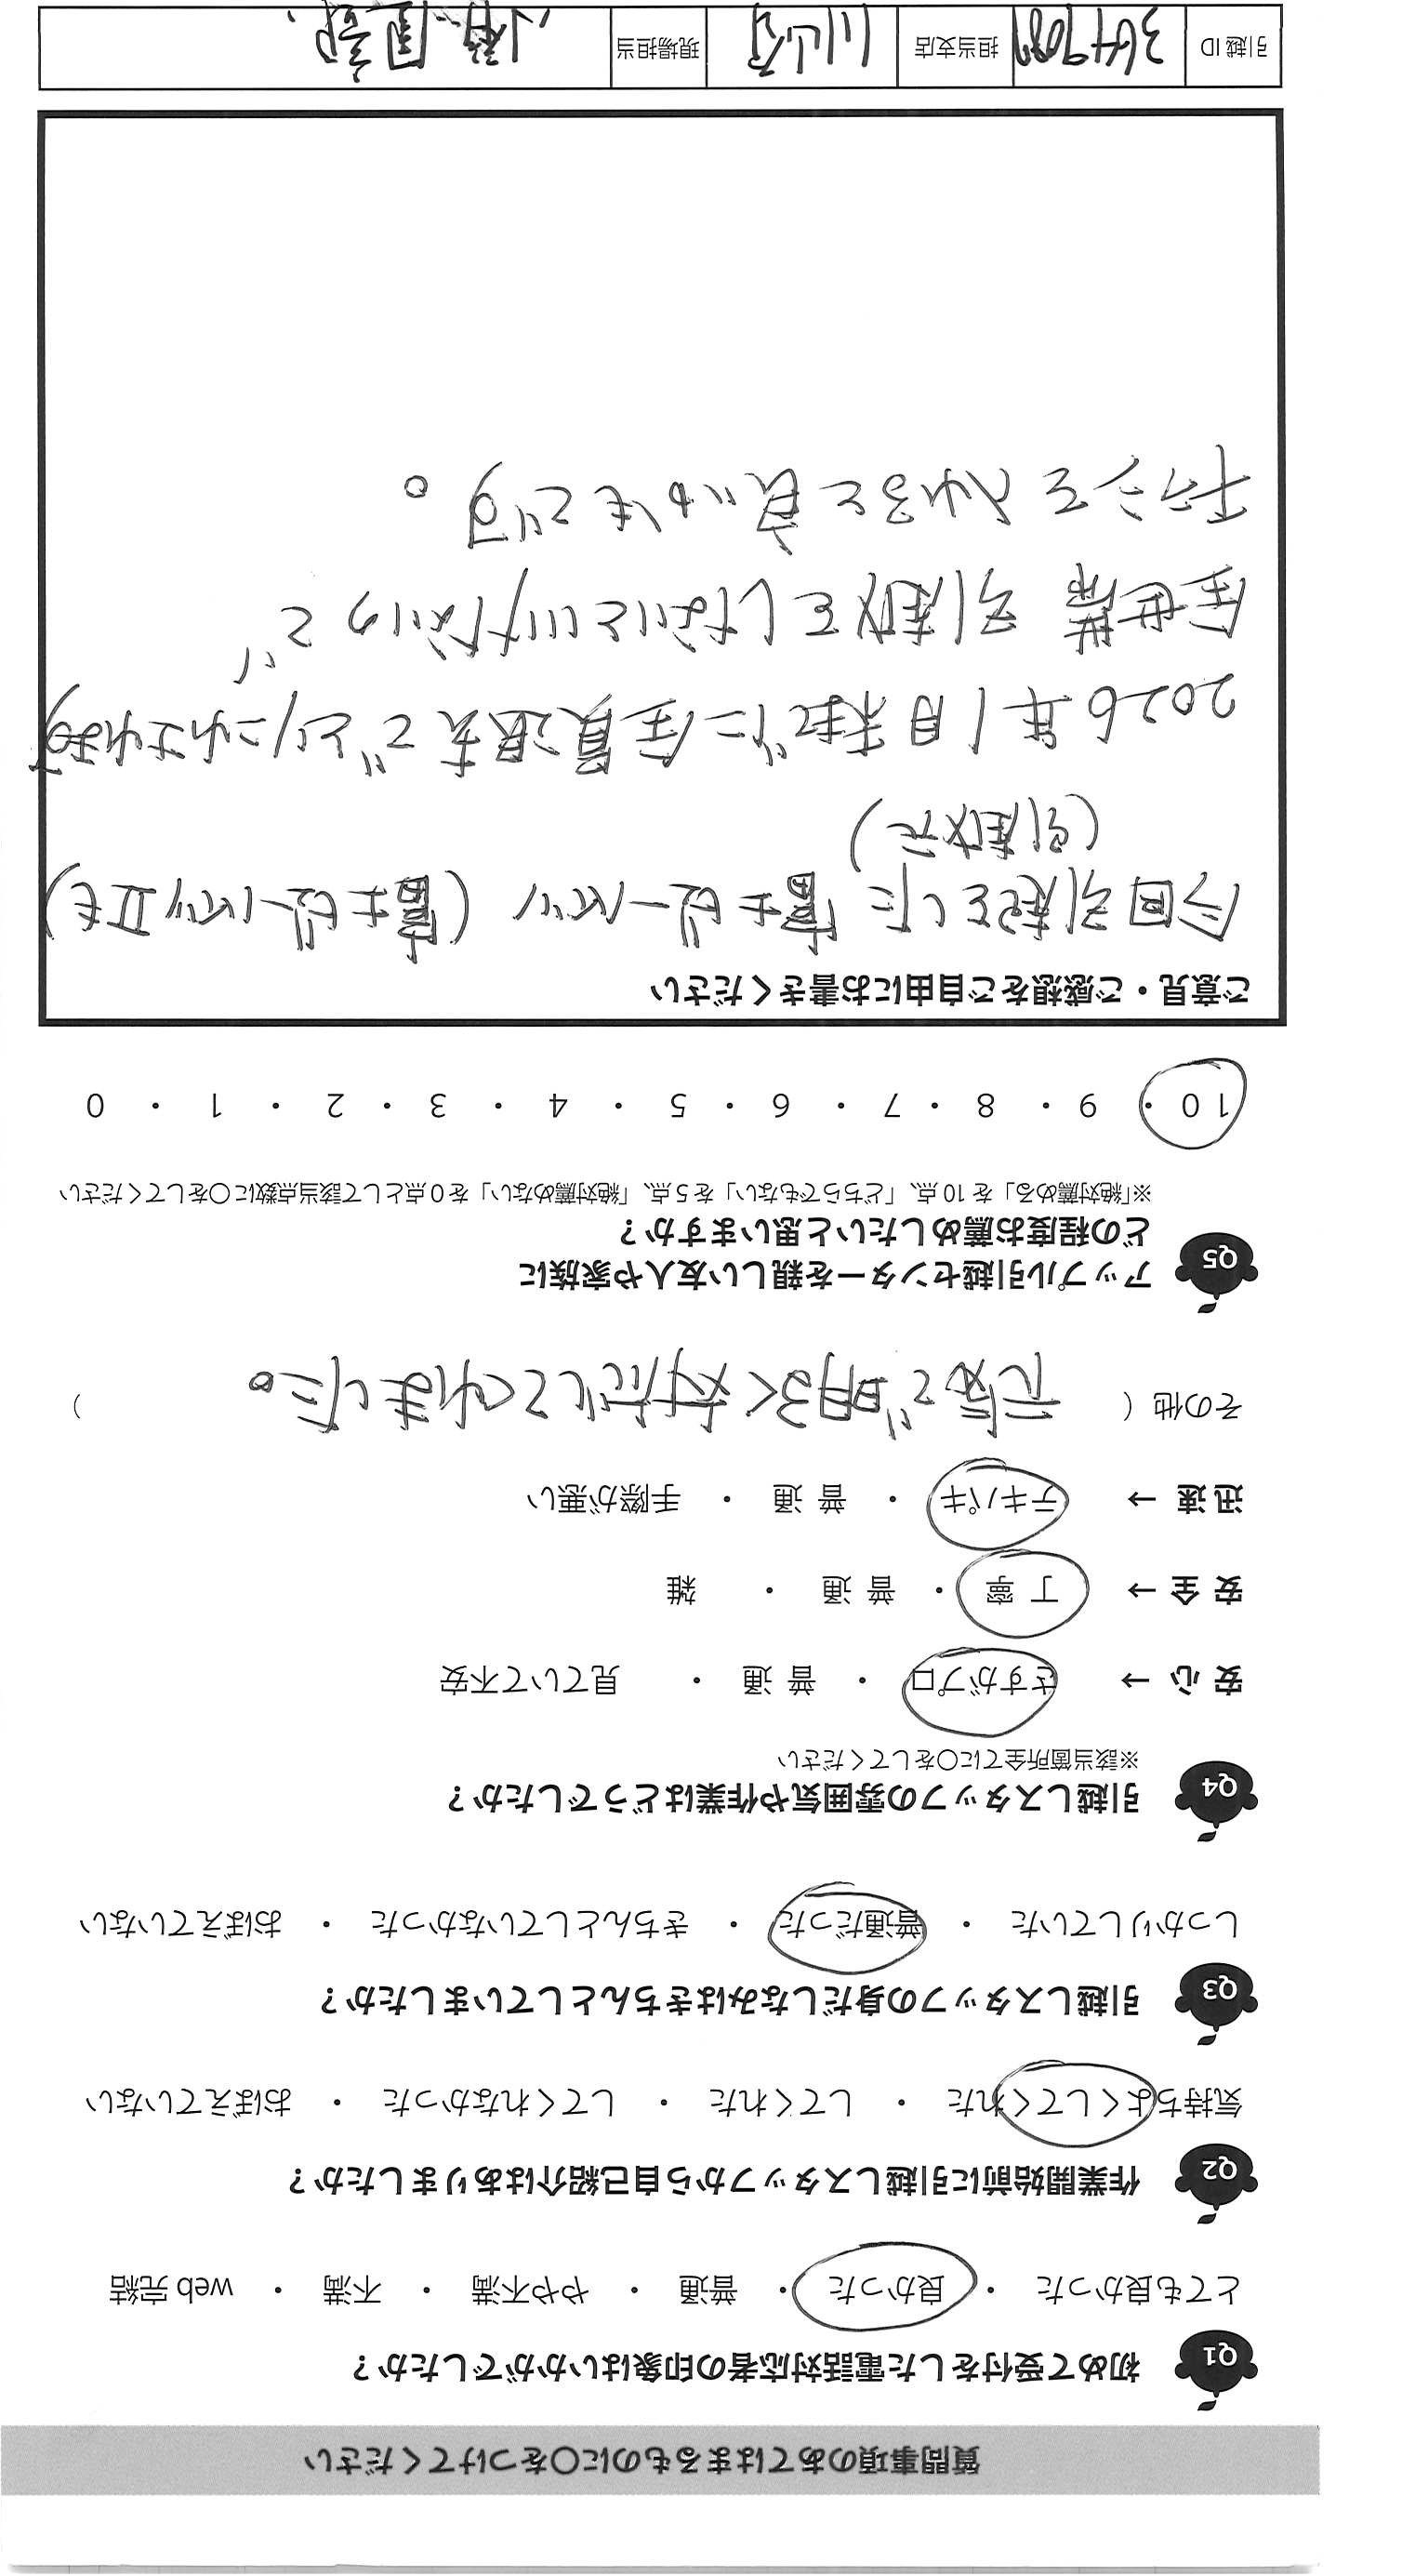 質問事項のあてはまるものに〇をつけてください
Q1 初めて受付をした電話対応者の印象はいかがでしたか？
とても良かった ・ 良かった ・ 普通 ・ やや不満 ・ 不満 ・ web 完結
Q2 作業開始前に引越しスタッフから自己紹介はありましたか？
気持ちよくしてくれた ・ してくれた ・ してくれなかった ・ おぼえていない
Q3 引越しスタッフの身だしなみはきちんとしていましたか？
しっかりしていた ・ 普通だった ・ きちんとしていなかった ・ おぼえていない
Q4 引越しスタッフの雰囲気や作業はどうでしたか？
※該当箇所全てに〇をしてください
安 心 → さすがプロ ・ 普 通 ・ 見ていて不安
安 全 → 丁 寧 ・ 普 通 ・ 雑
迅 速 → テキパキ ・ 普 通 ・ 手際が悪い
その他（ 元気で明るく対応してくれました。 ）
Q5 アップル引越センターを親しい友人や家族に
どの程度お薦めしたいと思いますか？
※「絶対薦める」を 10 点、「どちらでもない」を 5 点、「絶対薦めない」を 0 点として該当点数に〇をしてください
10 ・ 9 ・ 8 ・ 7 ・ 6 ・ 5 ・ 4 ・ 3 ・ 2 ・ 1 ・ 0
ご意見・ご感想をご自由にお書きください
今回引越をした 富士ビーハイツ (富士ビーハイツⅡも)
(引越元)
2026年1月末までに全員退去でとりこわされます
全世帯 引越をしないといけないので
チラシを入れると良いかもです。
引越 ID 担当支店 現場担当